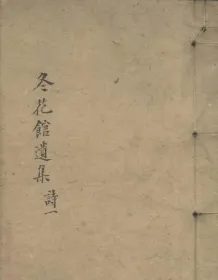 冬花館遺集 詩一